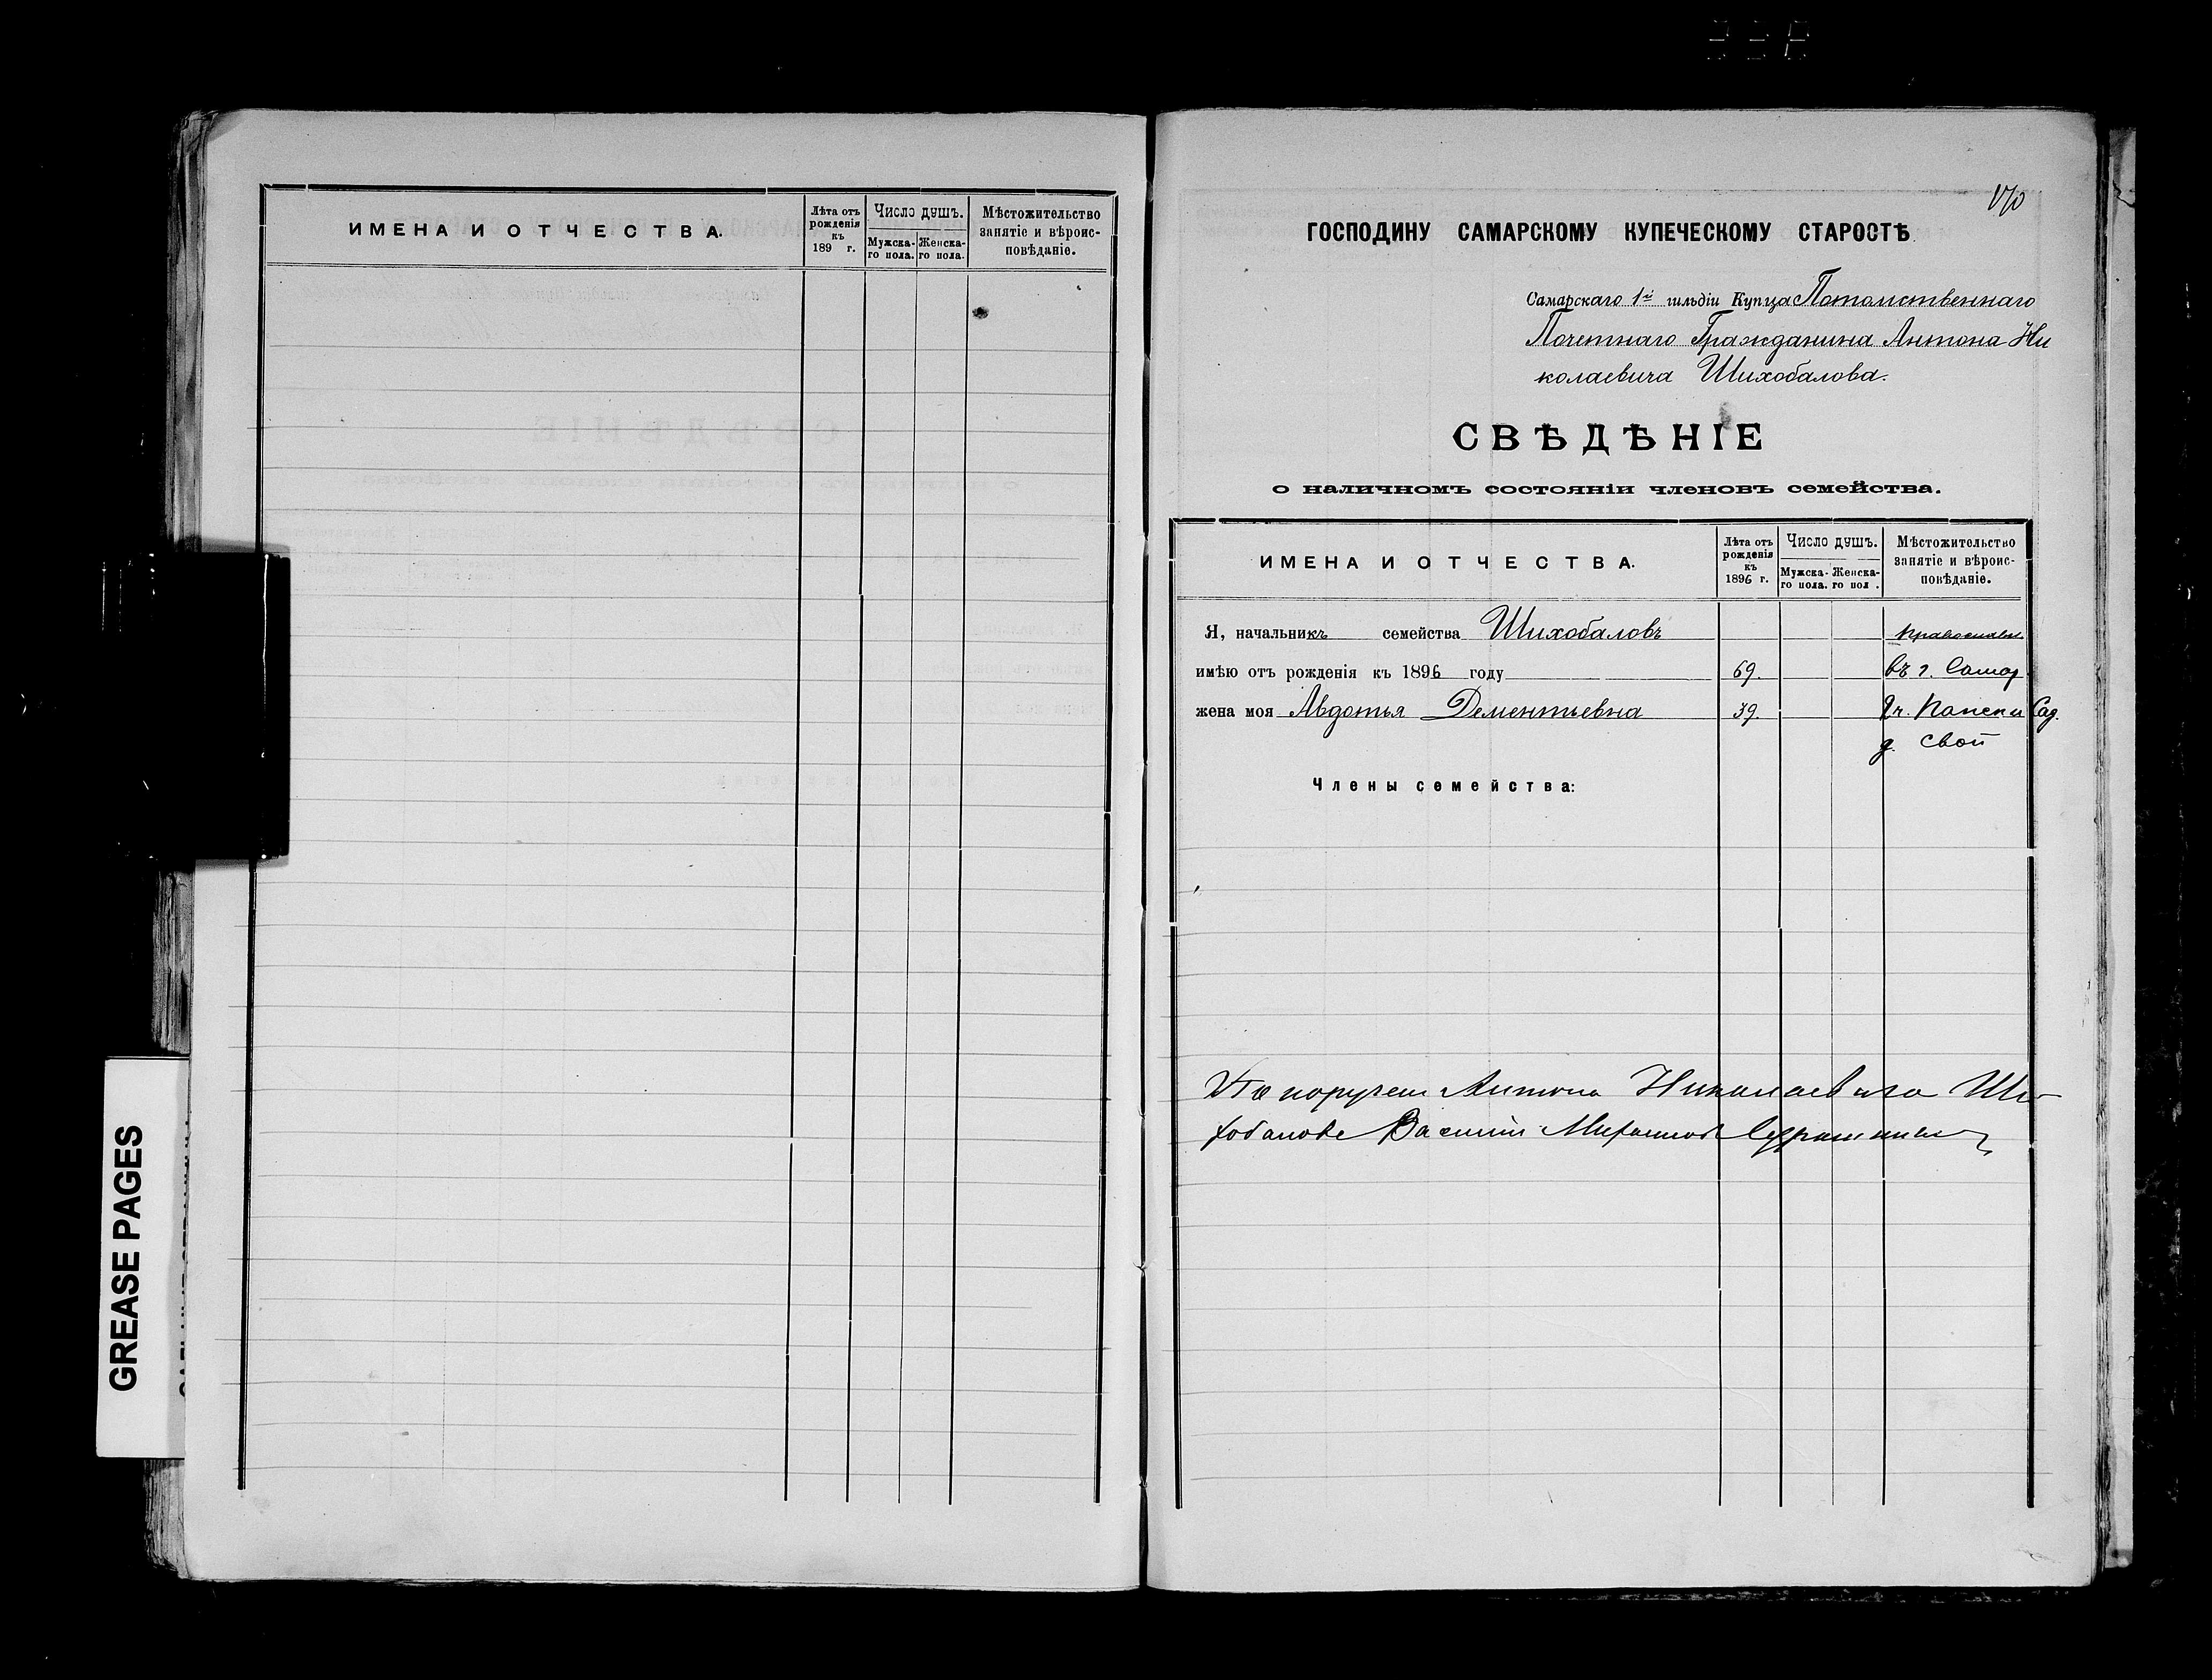 ИМЕНА И ОТЧЕСТВА.
Лѣта отъ рожденія къ 189 г.
Число душъ.
Мужска-го пола.
Женска-го пола.
Мѣстожительство занятіе и вѣроис-повѣданіе.
GREASE PAGES
170
ГОСПОДИНУ САМАРСКОМУ КУПЕЧЕСКОМУ СТАРОСТѢ
Самарскаго 1й гильдіи Купца Потомственнаго
Почетнаго Гражданина Антона Ни
колаевича Шихобалова.
СВѢДѢНІЕ
о наличномъ состояніи членовъ семейства.
ИМЕНА И ОТЧЕСТВА.
Лѣта отъ рожденія къ 1896 г.
Число душъ.
Мужска-го пола.
Женска-го пол .
Мѣстожительство занятіе и вѣроис-повѣданіе.
Я, начальникъ семейства Шихобаловъ православн.
имѣю отъ рожденія къ 1896 году 69. въ г. Самар
жена моя Авдотья Дементьевна 39. Сад.
д. свой
Члены семейства:
По порученію Антона Николаевича Ши-
хобалова Василий